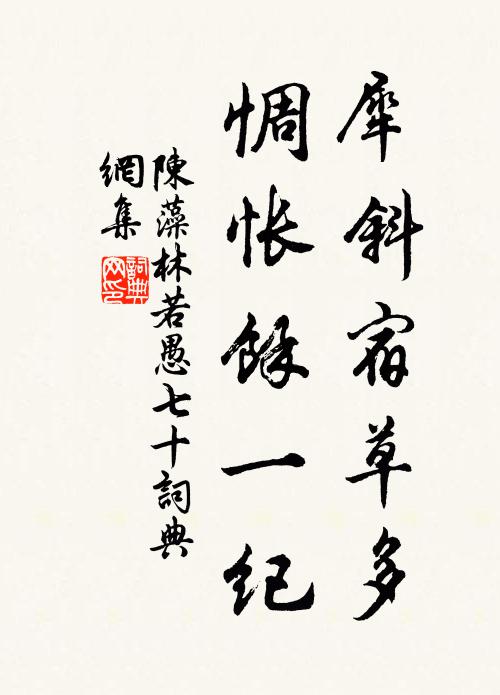 犀斜宿草多
惆悵餘一纪
陳藻林若愚七十詞典
網集
詞典
网印